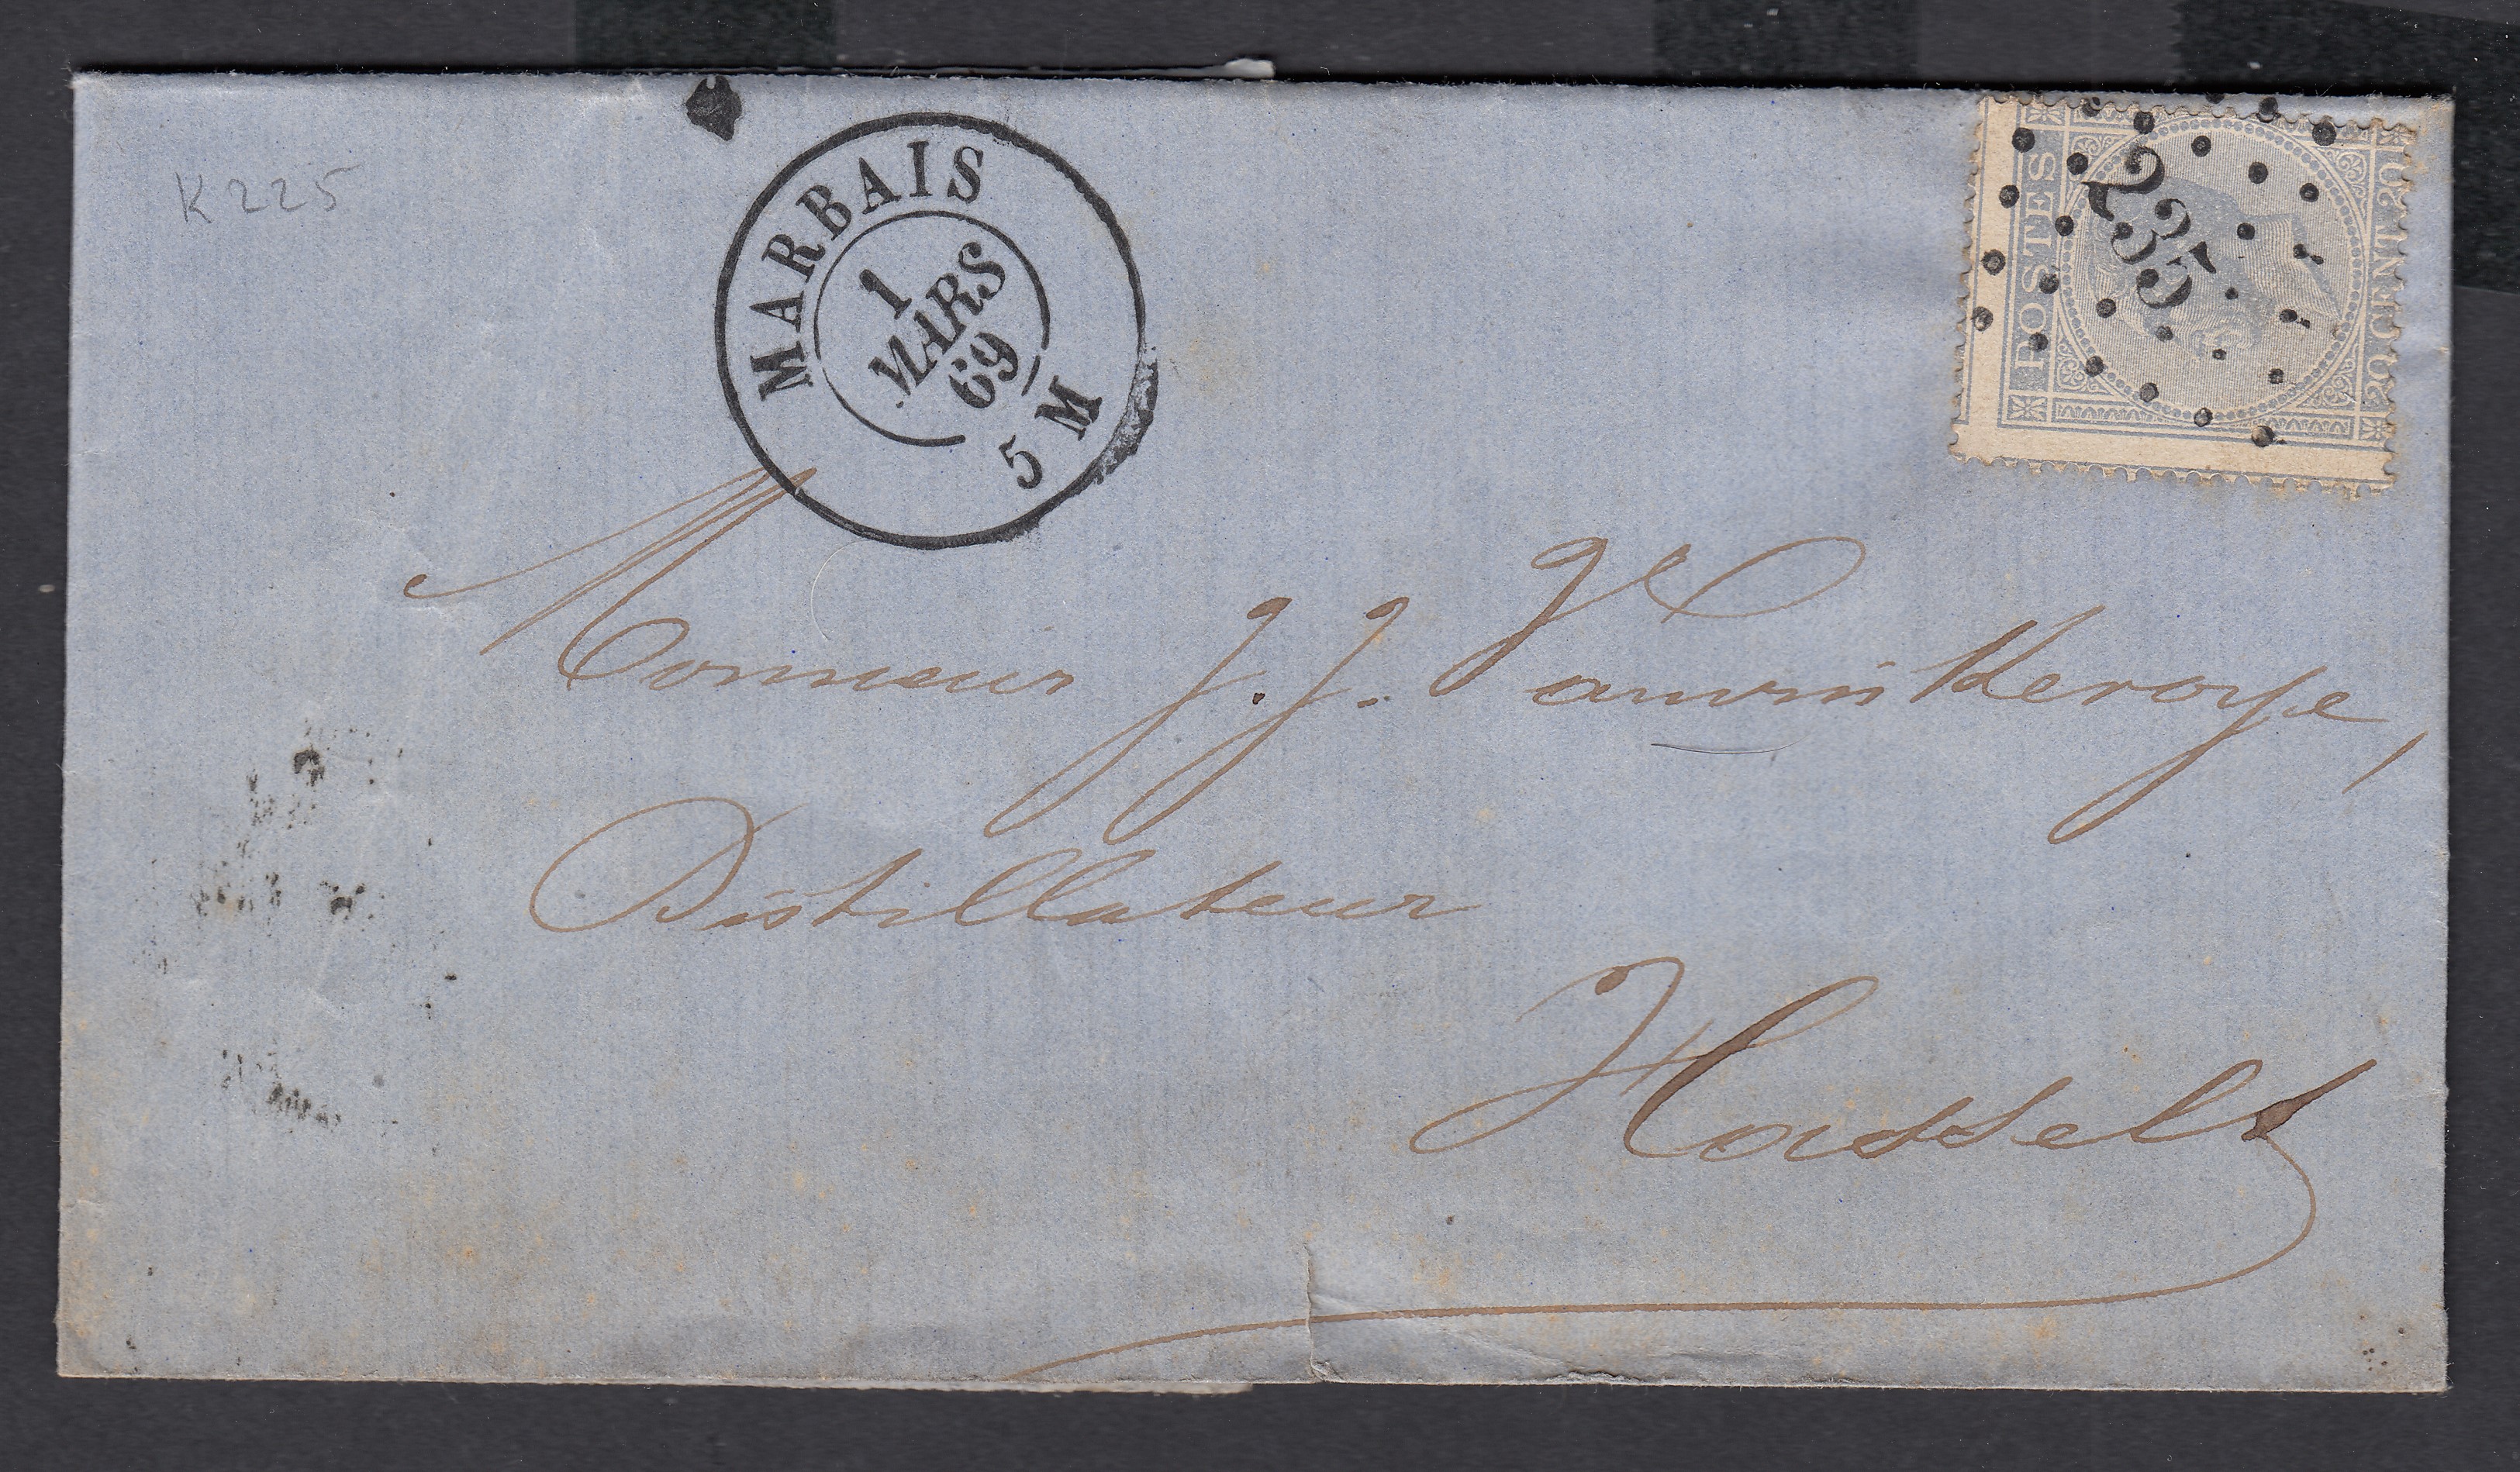 K 225
MARBAIS
1
MARS
69
5 M
POSTES
235
20 CENT.20
Monsieur J. J. Vanvinkeroye,
Distillateur
Hasselt